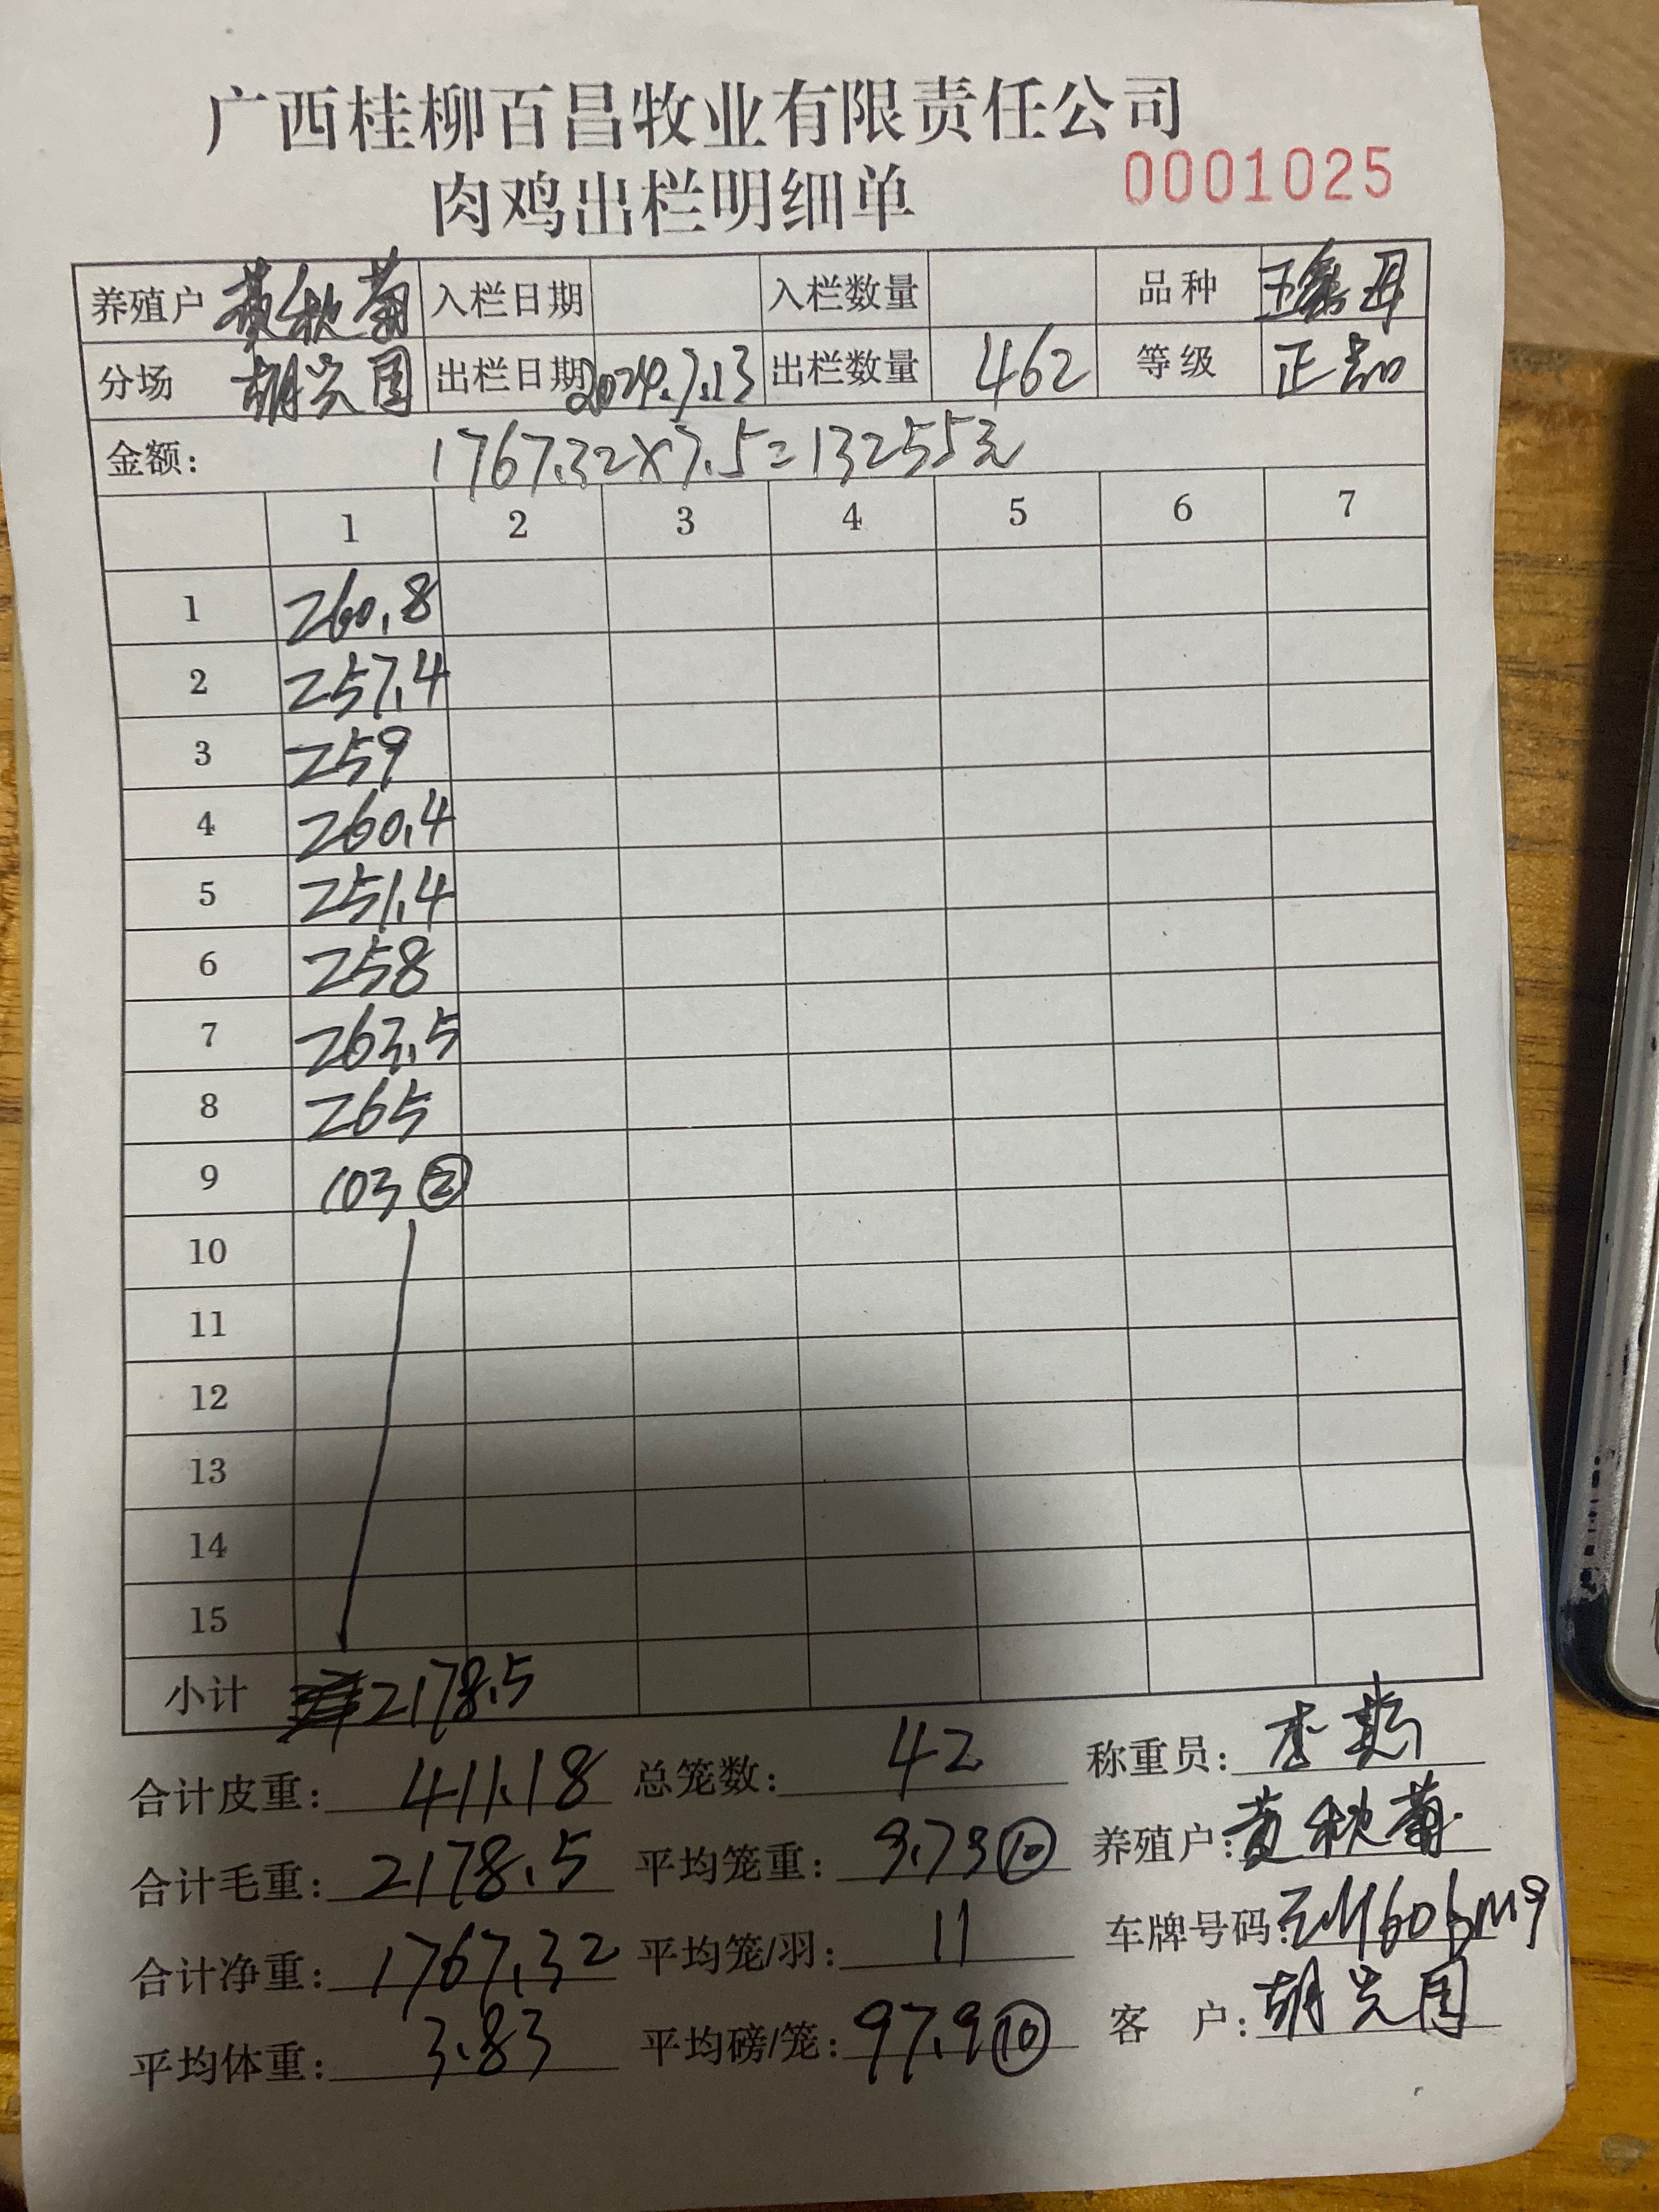 广西桂柳百昌牧业有限责任公司
肉鸡出栏明细单 0001025
养殖户 黄秋菊 入栏日期 入栏数量 品种
分场 胡光国 出栏日期 2024.7.13 出栏数量 462 等级 正品
金额: 1767.32×7.5=13255元
1 2 3 4 5 6 7
1 260.8
2 257.4
3 259
4 260.4
5 251.4
6 258
7 263.5
8 265
9 103 ②
10
11
12
13
14
15
小计 2178.5
合计皮重: 411.18 总笼数: 42 称重员:
合计毛重: 2178.5 平均笼重: 9.79 ⑩ 养殖户: 黄秋菊
合计净重: 1767.32 平均笼/羽: 11 车牌号码:
平均体重: 3.83 平均磅/笼: 97.9 ⑩ 客 户: 胡光国